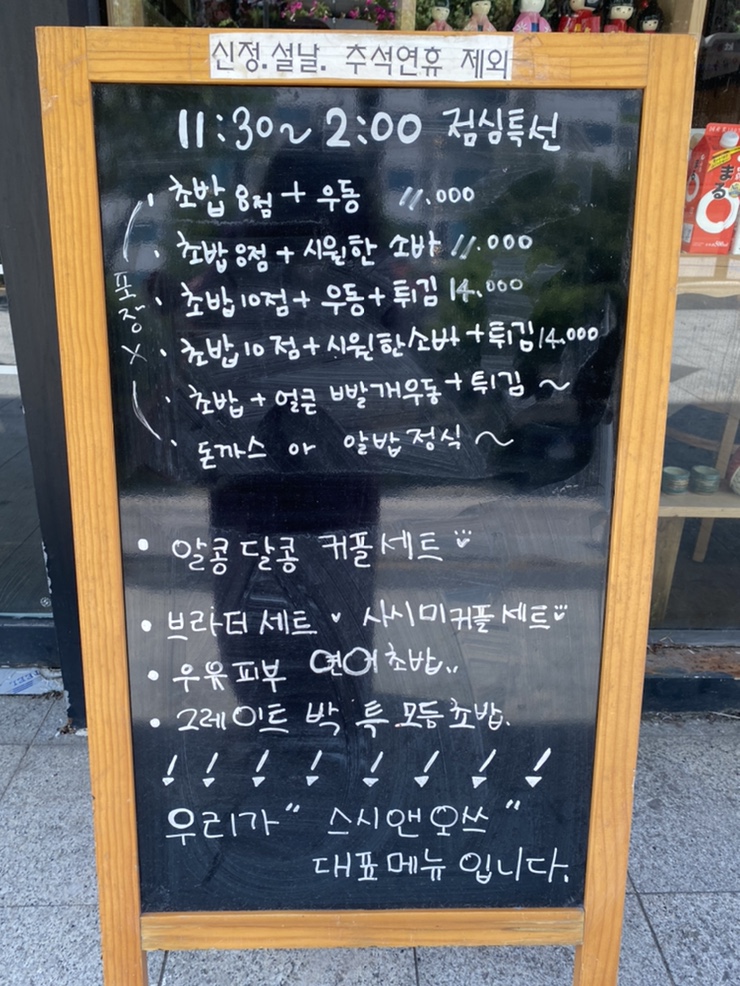 신정.설날. 추석연휴 제외
11:30~2:00 점심특선
초밥 8점 + 우동 11.000
초밥 8점 + 시원한 소바 11.000
초밥 10점 + 우동 + 튀김 14.000
초밥 10점 + 시원한 소바 + 튀김 14.000
초밥 + 얼큰 빠알개우동 + 튀김 ~
돈까스 or 알밥정식 ~
포장 X
알콩달콩 커플세트
브라더세트 사시미커플세트
우유피부 연어초밥..
그레이트 박 특 모듬초밥.
우리가 "스시앤오쓰"
대표메뉴입니다.
まる